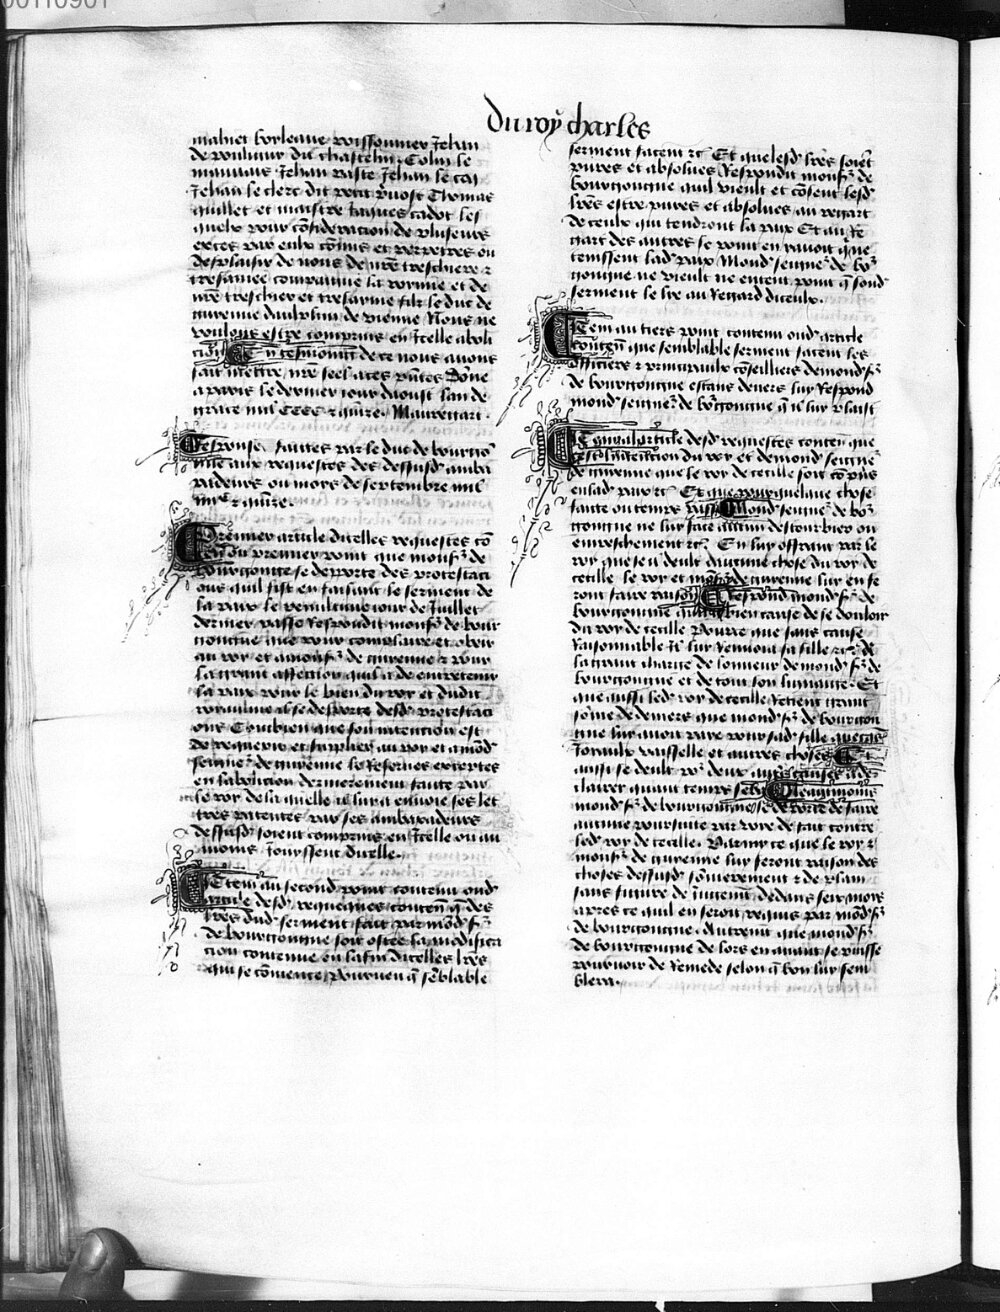 00110901
Du roy charles
mahiet borleaue poissonnier Jehan
de poulleur du chastelin Colin le
mauuais Jehan paste Jehan le coq
Jehan le clerc dit petit puost Thomas
quillet et maistre Jaques cadot les
quelx pour consideracion de plusieurs
exces par eulx comis et perpetres ou
desplaisir de nous de nre treschiere &
tresamee compaigne la royne et de
nre treschier et tresayme filz le duc de
guienne daulphin de vienne Nous ne
voulons estre comprins en Icelle aboli
cion En tesmoing de ce nous auons
fait mettre nre seel a ces pntes Done
a paris le dernier jour daoust lan de
grace mil CCCC & quize. Mauregart.
Response faittes par le duc de bourgo
ngne aux requestes des dessusd amba
xadeurs ou mois de septembre mil
iiiic & quize.
Premier article dicelles requestes co
tenu ou premier point que monsr de
bourgongne se deporte des protestaci
ons quil fist en faisant le serment de
la paix le penultime jour de Juillet
dernier passe Respondit monsr de bour
gongne que pour complaire et obeir
au roy et a monsr de guienne & pour
la grant affection quil a de entretenir
la paix pour le bien du roy et dudit
royaulme il se desporte desd protestaci
ons Combien que son intencion est
de requerir et supplier au roy et a mond
seigneur de guienne le Reserues exceptes
en labolicion derrenierement faitte par
le roy de la quelle il lui a enuoie ses let
tres patentes par ses ambaxadeurs
dessusd soient comprins en Icelle ou au
moins Jouyssent dicelle.
Item au second point contenu oud
article desd requestes conten q des
lres dud serment fait par mond sr
de bourgongne soit ostee la modifica
cion contenue en la fin dicelles lres
qui se comence Pourueu q semblable
serment facent &c Et que lesd lres soiet
pures et absolues Respondit monsr de
bourgongne quil vieult et cosent lesd
lres estre pures et absolues au regart
de ceulx qui tendront la paix Et au Re
gart des autres se point en y auoit q ne
tenissent lad paix Mond seignr de bo
gongne ne vieult ne entent point q sond
serment le lie au Regard diceulx.
Item au tiers point contenu oud article
conten que semblable serment facent les
officiers & principaulx conseilliers de mond sr
de bourgongne estans deuers luy Respond
mond seignr de bogongne q il luy plaist
Item oud article desd requestes conten que
cest lintencion du roy et de mond seigne
de guienne que le roy de cecille soit co pns
en lad paix &c Et que pour quelque chose
faite ou temps passe Mond seigne de bo
gongne ne luy face aucun destourbier ou
empeschement &c En luy offrant par le
roy que se il veult daucune chose du roy de
cecille le roy et mons de guienne luy en fe
ront faire raison Respond mond sr de
bourgongne quil a bien cause de se douloir
du roy de cecille Pource que sans cause
Raisonnable Il luy Renuoia sa fille &c A
la grant charge de lonneur de mond sr de
bourgongne et de tout son lignaige. Et
que aussi led roy de cecille Retient grant
some de deniers que mond sr de bourgon
gne luy auoit paye pour sad fille auecqs
Joyaulx vaisselle et autres choses Et
aussi se deult pr deux autres causes a de
clairer quant temps sera Neantmoins
mond sr de bourgongne se deporte de faire
aucune poursuite par voye de fait contre
led roy de cecille. Parmy ce que le roy &
monsr de guienne luy feront raison des
choses dessusd somerement & de plain
sans figure de iugement dedans six mois
apres ce quil en seront requis par mod sr
de bourgongne. Autrement que mond sr
de bourgongne de lors en auant se puisse
pourueoir de Remede selon q bon luy sem
blera.